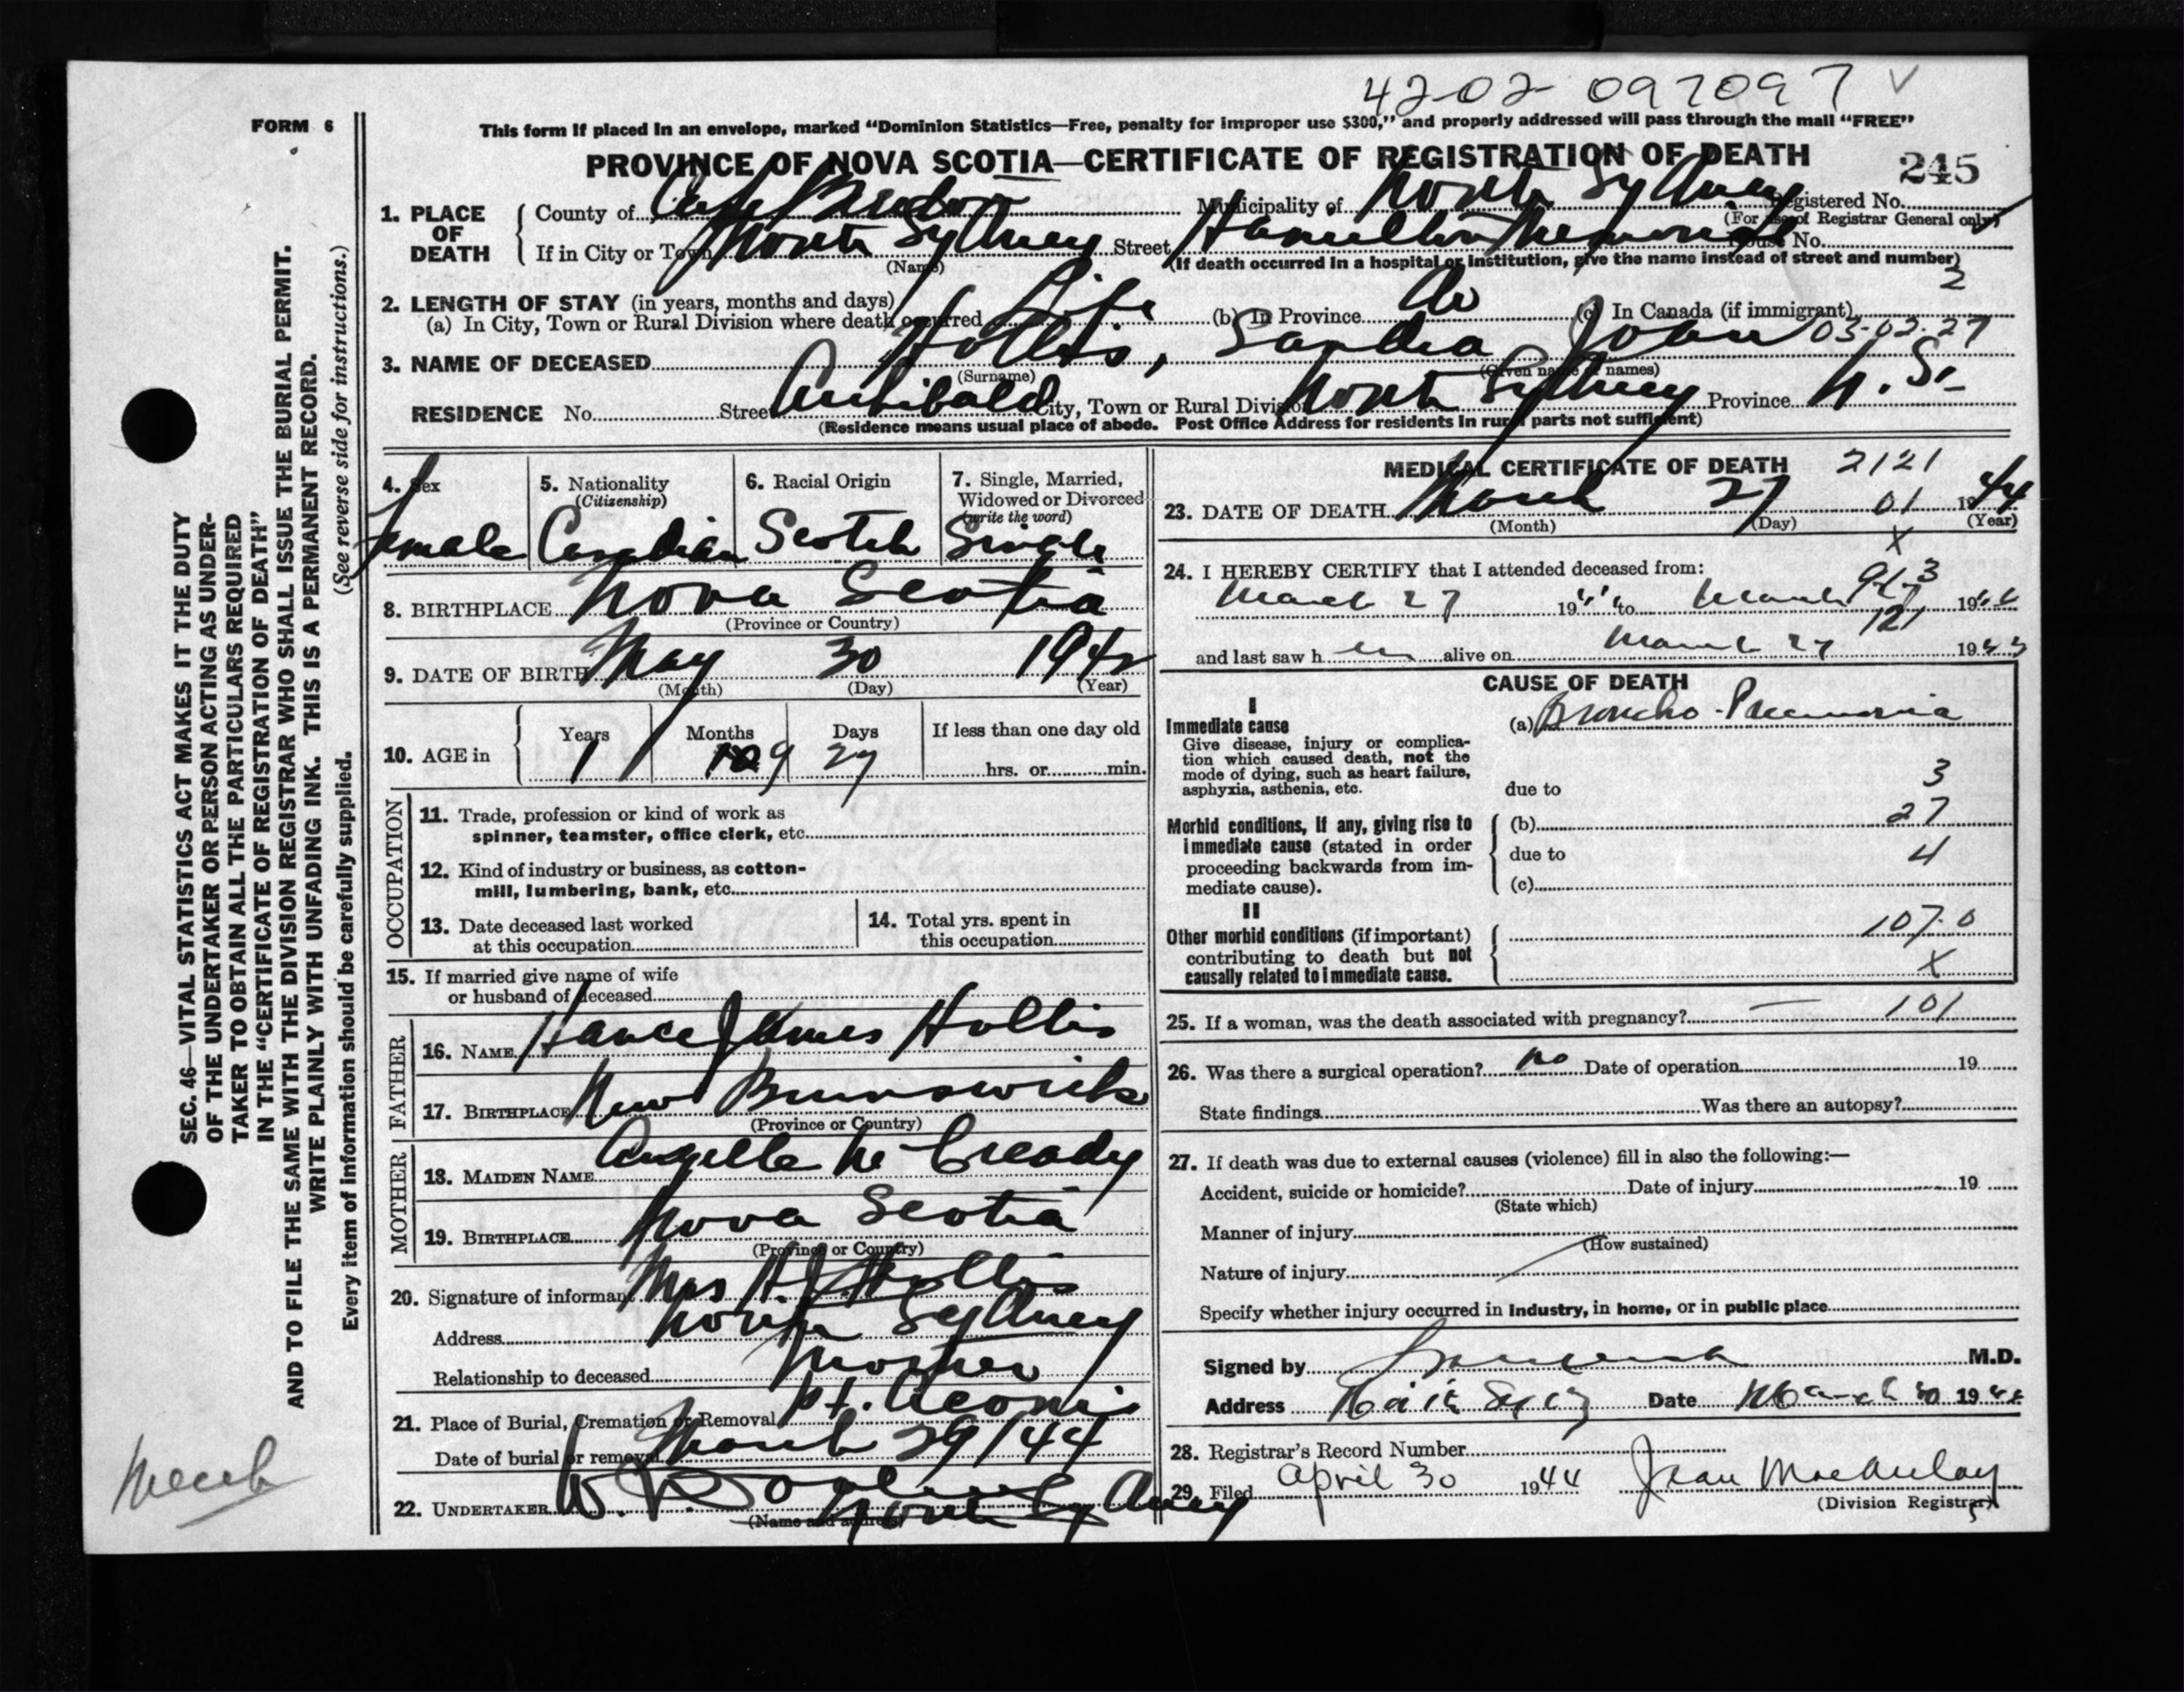 42-02-097097 V
FORM 6
This form if placed in an envelope, marked “Dominion Statistics—Free, penalty for improper use $300,” and properly addressed will pass through the mail “FREE”
PROVINCE OF NOVA SCOTIA—CERTIFICATE OF REGISTRATION OF DEATH
245
1. PLACE OF DEATH
County of Cape Breton Municipality of North Sydney Registered No.
(For use of Registrar General only)
If in City or Town North Sydney Street Hamilton Memorial House No.
(Name)
(If death occurred in a hospital or institution, give the name instead of street and number)
2
2. LENGTH OF STAY (in years, months and days)
(a) In City, Town or Rural Division where death occurred Life (b) In Province do (c) In Canada (if immigrant)
03-02-27
3. NAME OF DECEASED Hollis, Sandra Joan
(Surname) (Given name or names)
RESIDENCE No. Street Archibald City, Town or Rural Division North Sydney Province N. S.
(Residence means usual place of abode. Post Office Address for residents in rural parts not sufficient)
4. Sex
female
5. Nationality
(Citizenship)
Canadian
6. Racial Origin
Scotch
7. Single, Married,
Widowed or Divorced
(write the word)
Single
8. BIRTHPLACE Nova Scotia
(Province or Country)
9. DATE OF BIRTH May 30 1942
(Month) (Day) (Year)
10. AGE in
Years Months Days If less than one day old
1 9 27 hrs. or min.
OCCUPATION
11. Trade, profession or kind of work as
spinner, teamster, office clerk, etc.
12. Kind of industry or business, as cotton-
mill, lumbering, bank, etc.
13. Date deceased last worked
at this occupation
14. Total yrs. spent in
this occupation
15. If married give name of wife
or husband of deceased
FATHER
16. NAME Hance James Hollis
17. BIRTHPLACE New Brunswick
(Province or Country)
MOTHER
18. MAIDEN NAME Mc Cready
19. BIRTHPLACE Nova Scotia
(Province or Country)
20. Signature of informant Mrs H. J. Hollis
Address North Sydney
Relationship to deceased Mother
21. Place of Burial, Cremation or Removal Pt. Aconi
Date of burial or removal March 29/44
22. UNDERTAKER
North Sydney
(Name and address)
MEDICAL CERTIFICATE OF DEATH 2121
23. DATE OF DEATH March 27 01 1944
(Month) (Day) (Year)
X
24. I HEREBY CERTIFY that I attended deceased from:
March 27 1944 to March 1944
121
and last saw h er alive on March 27 1944
CAUSE OF DEATH
I
Immediate cause
Give disease, injury or complica-
tion which caused death, not the
mode of dying, such as heart failure,
asphyxia, asthenia, etc.
(a) Broncho-Pneumonia
3
due to
Morbid conditions, if any, giving rise to
immediate cause (stated in order
proceeding backwards from im-
mediate cause).
(b) 27
due to 4
(c)
II
Other morbid conditions (if important)
contributing to death but not
causally related to immediate cause.
107.0
X
25. If a woman, was the death associated with pregnancy? — 101
26. Was there a surgical operation? no Date of operation 19
State findings Was there an autopsy?
27. If death was due to external causes (violence) fill in also the following:—
Accident, suicide or homicide? Date of injury 19
(State which)
Manner of injury
(How sustained)
Nature of injury
Specify whether injury occurred in industry, in home, or in public place
Signed by M.D.
Address Date March 30 1944
28. Registrar's Record Number
29. Filed April 30 1944 Jean MacAulay
(Division Registrar)
SEC. 46—VITAL STATISTICS ACT MAKES IT THE DUTY
OF THE UNDERTAKER OR PERSON ACTING AS UNDER-
TAKER TO OBTAIN ALL THE PARTICULARS REQUIRED
IN THE “CERTIFICATE OF REGISTRATION OF DEATH”
AND TO FILE THE SAME WITH THE DIVISION REGISTRAR WHO SHALL ISSUE THE BURIAL PERMIT.
WRITE PLAINLY WITH UNFADING INK. THIS IS A PERMANENT RECORD.
Every item of information should be carefully supplied. (See reverse side for instructions.)